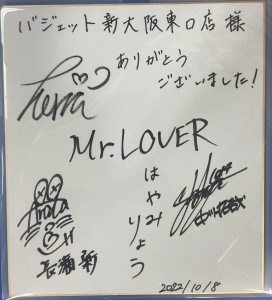 バジェット新大阪東口店様
ありがとう
ございました!
Mr.LOVER
はやみりょう
長瀬新
2022/10/8